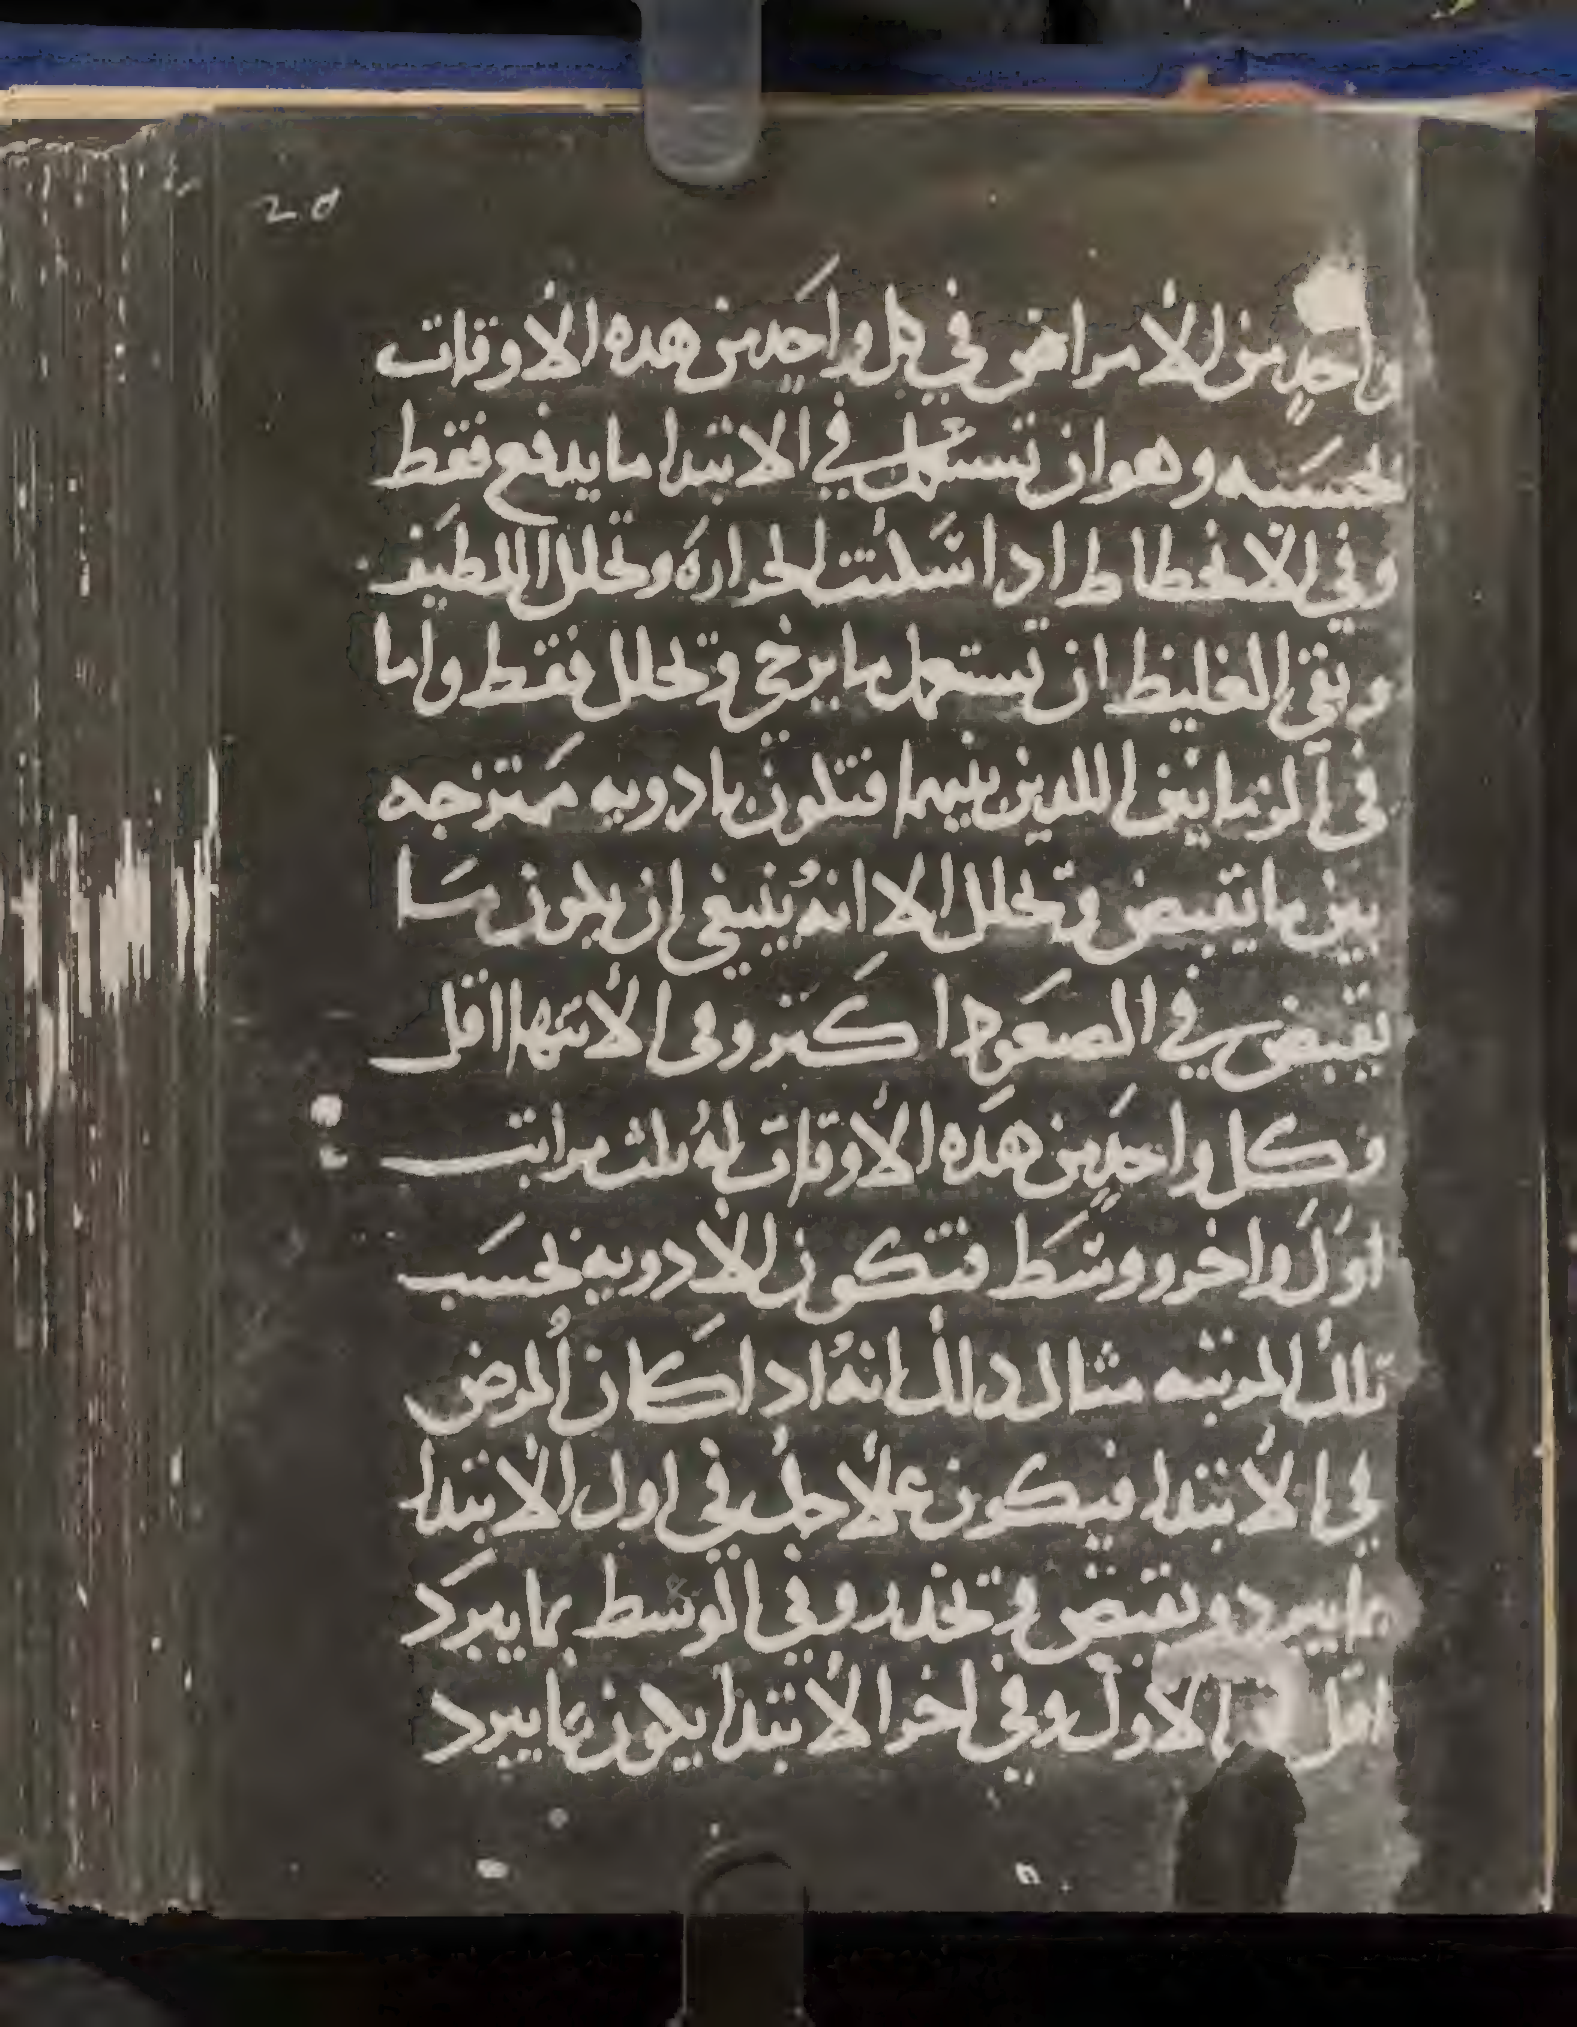 20
واحدٍ من الأمراض في كل واحد من هذه الاوقات
بحسبه وهو ان تستعمل في الابتدا ما يدفع فقط
وفي الانحطاط ادا سكنت الحراره وتحلل اللطيف
وبقي الغليظ ان تستعمل ما يرخي وتحلل فقط واما
في الزمانين اللدين بينهما فتكون بادويه ممتزجه
بين ما يقبض وتحلل الا انهُ ينبغي ان يكون ما
يقبض في الصعود اكثر وفي الانتها اقل
وكل واحدٍ من هده الاوقات لهُ ثلث مراتب
اوَل واخر ووسَط فتكون الادويه بحسَب
تلك المرتبه مثال دالك انهُ ادا كان المرض
في الابتدا فيكون علاجه في اول الابتدا
بما يبرد ويقبض وتخدر وفي الوسط بما يبرَد
اقل الاول وفي اخر الابتدا يكون بما يبرد